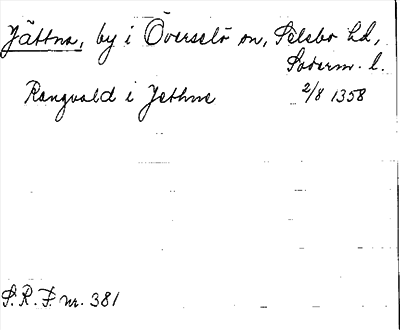 Jättna, by i Överselö sn, Selebo hd,
Söderm. l.
Rangvald i Jethne 2/8 1358
S.R.F. nr. 381